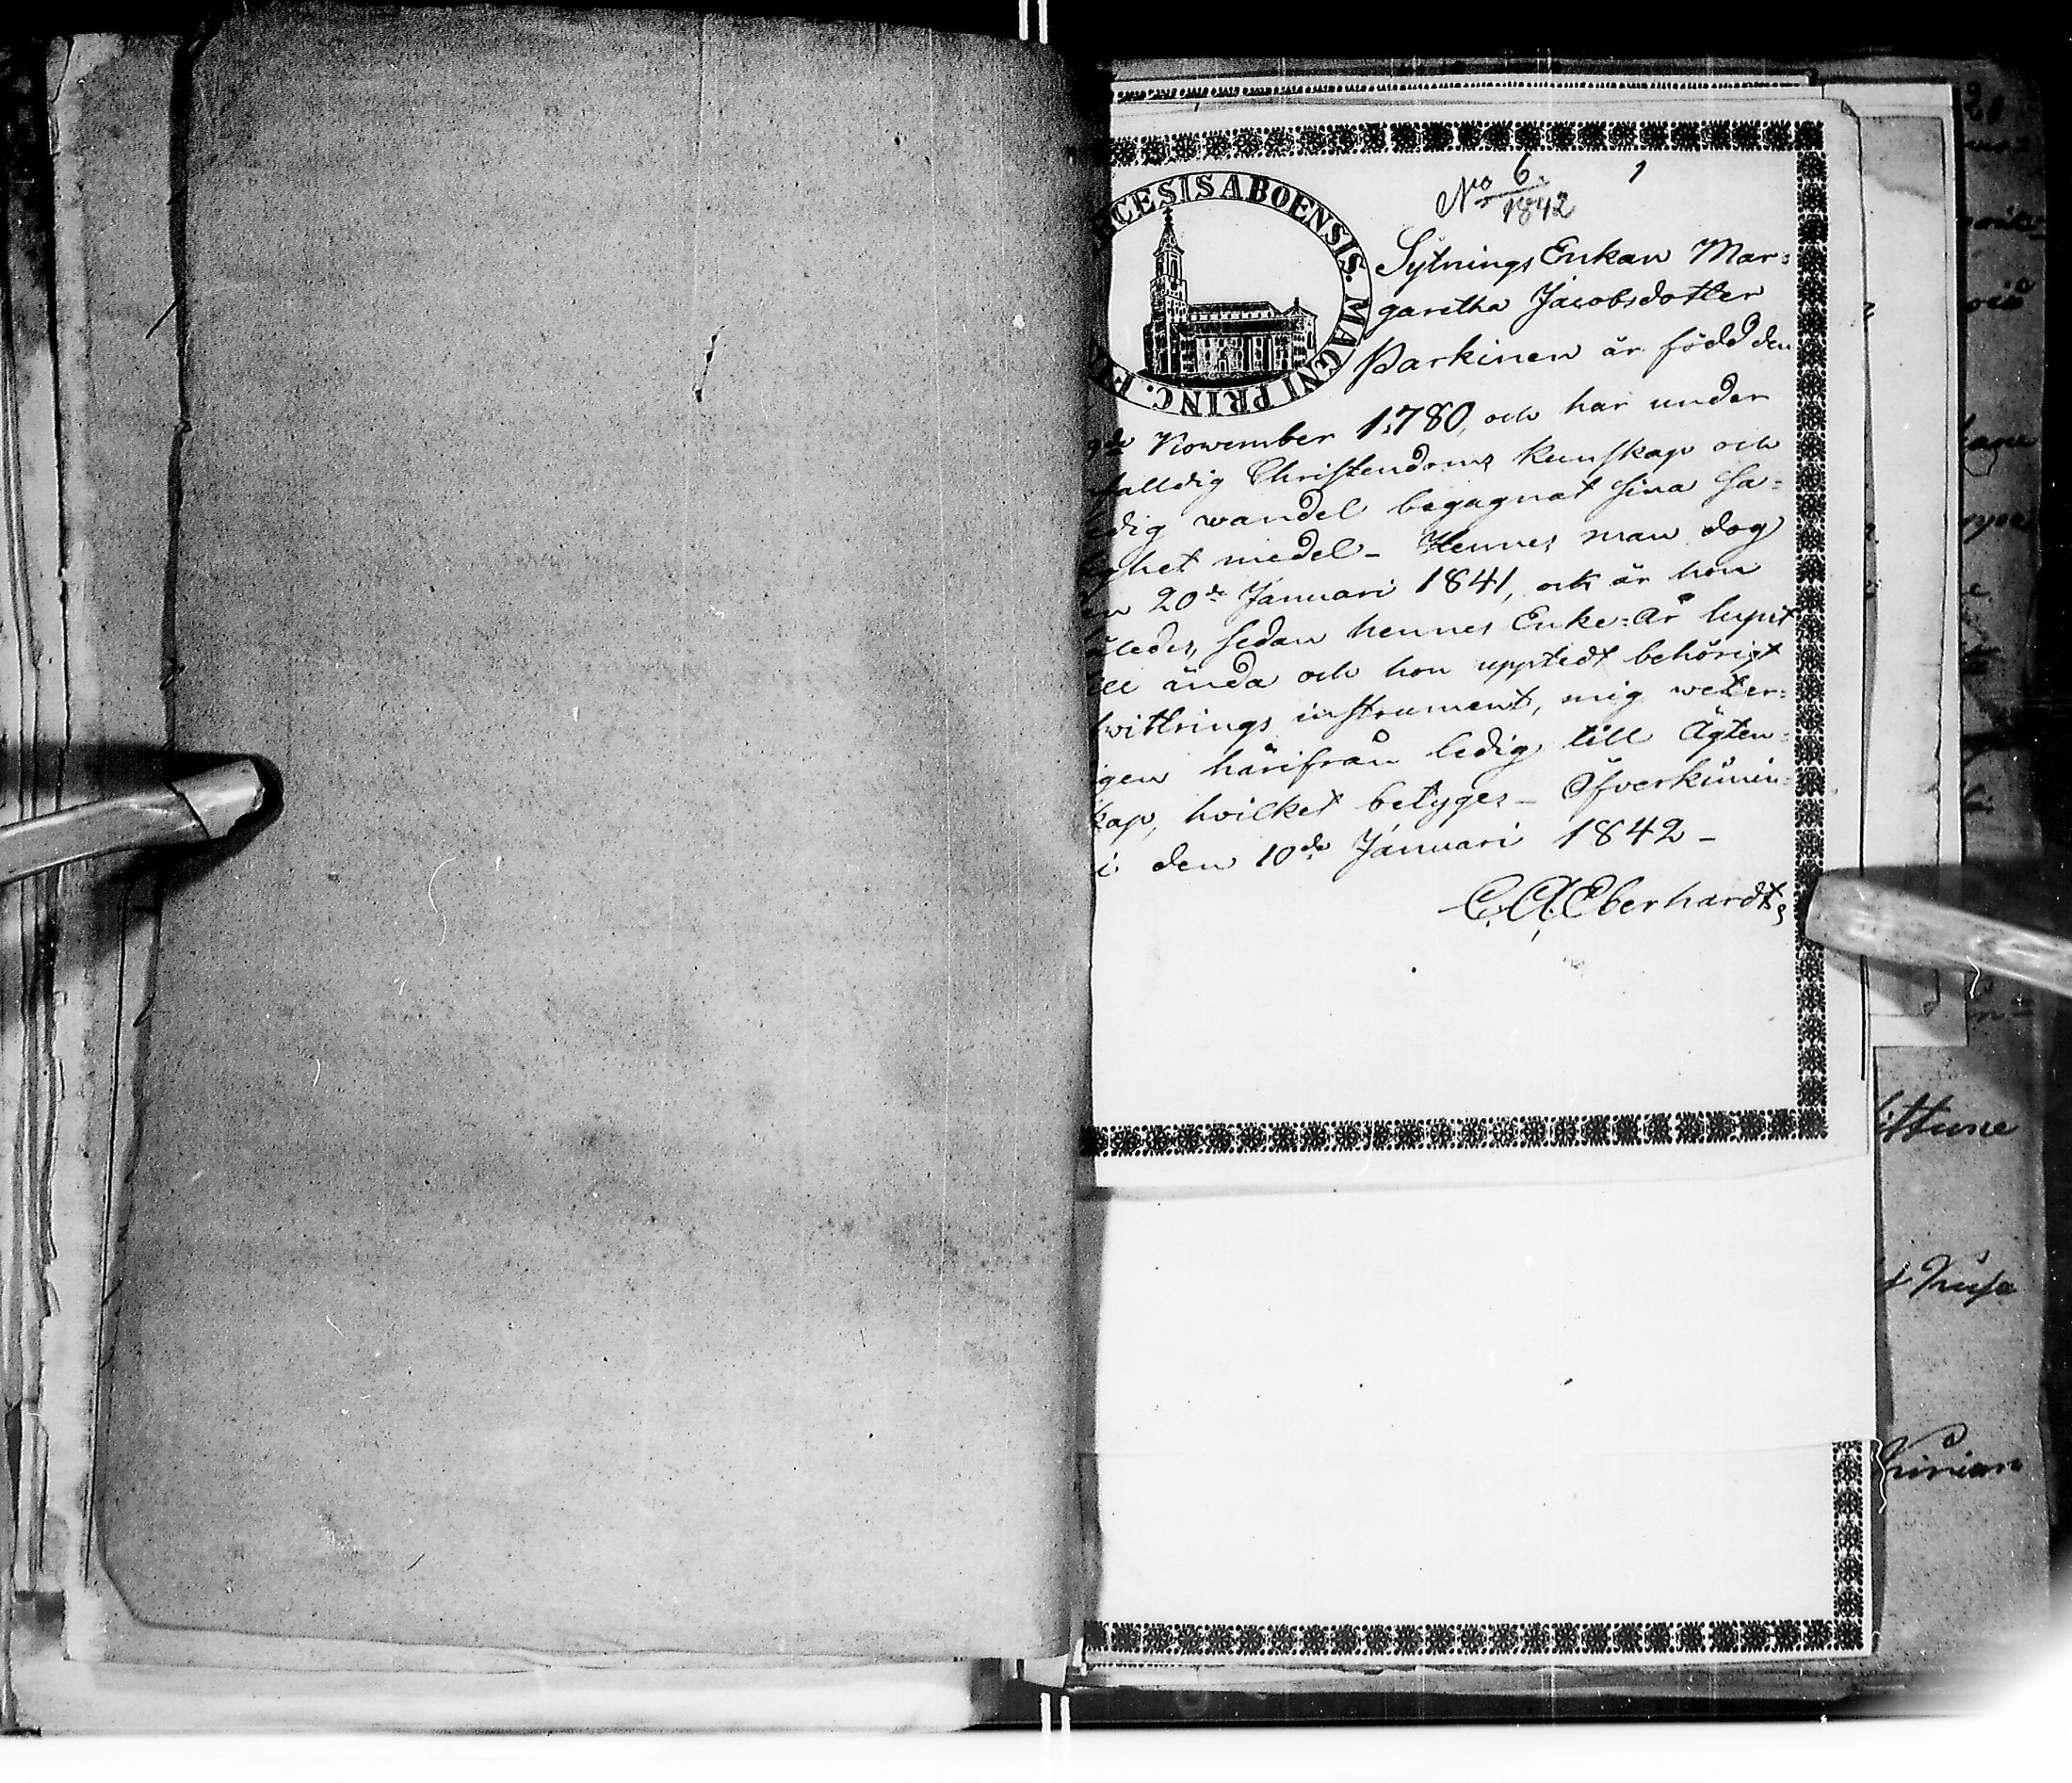 No 6. 1
1842
CESIS ABOENSIS. MAGNI PRINC. F
Sytnings Enkan Mar=
garetha Jacobsdotter
Parkinen är född den
9de November 1780, och har under
falldig Christendoms kunskap och
dig wandel begagnat sina Sa=
ghet medel - Hennes man dog
n 20de Januari 1841, och är hon
åledes, sedan hennes Enke=År lupit
ill ända och hon upptedt behörigt
wittrings instrument, mig weter=
igen härifrån ledig till Ägten=
kap, hvilket betyges - Öfverkiimin=
i den 10de Januari 1842 -
C. A. Eberhardt
ittune